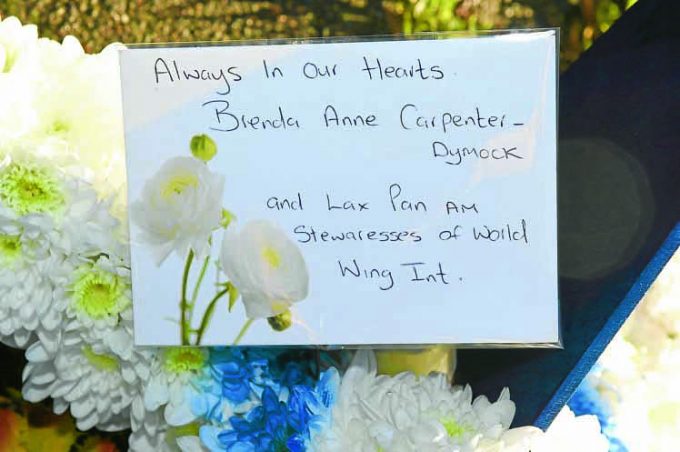 Always In Our Hearts.
Brenda Anne Carpenter-
Dymock
and Lax Pan AM
Stewaresses of World
Wing Int.